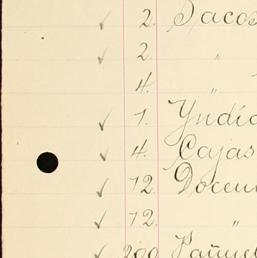 ✓ 2. Sacos
✓ 2. "
4. "
✓ 1. Yndia
✓ 4. Cajas
✓ 12. Docen
✓ 12. "
✓ 200 Pañuel